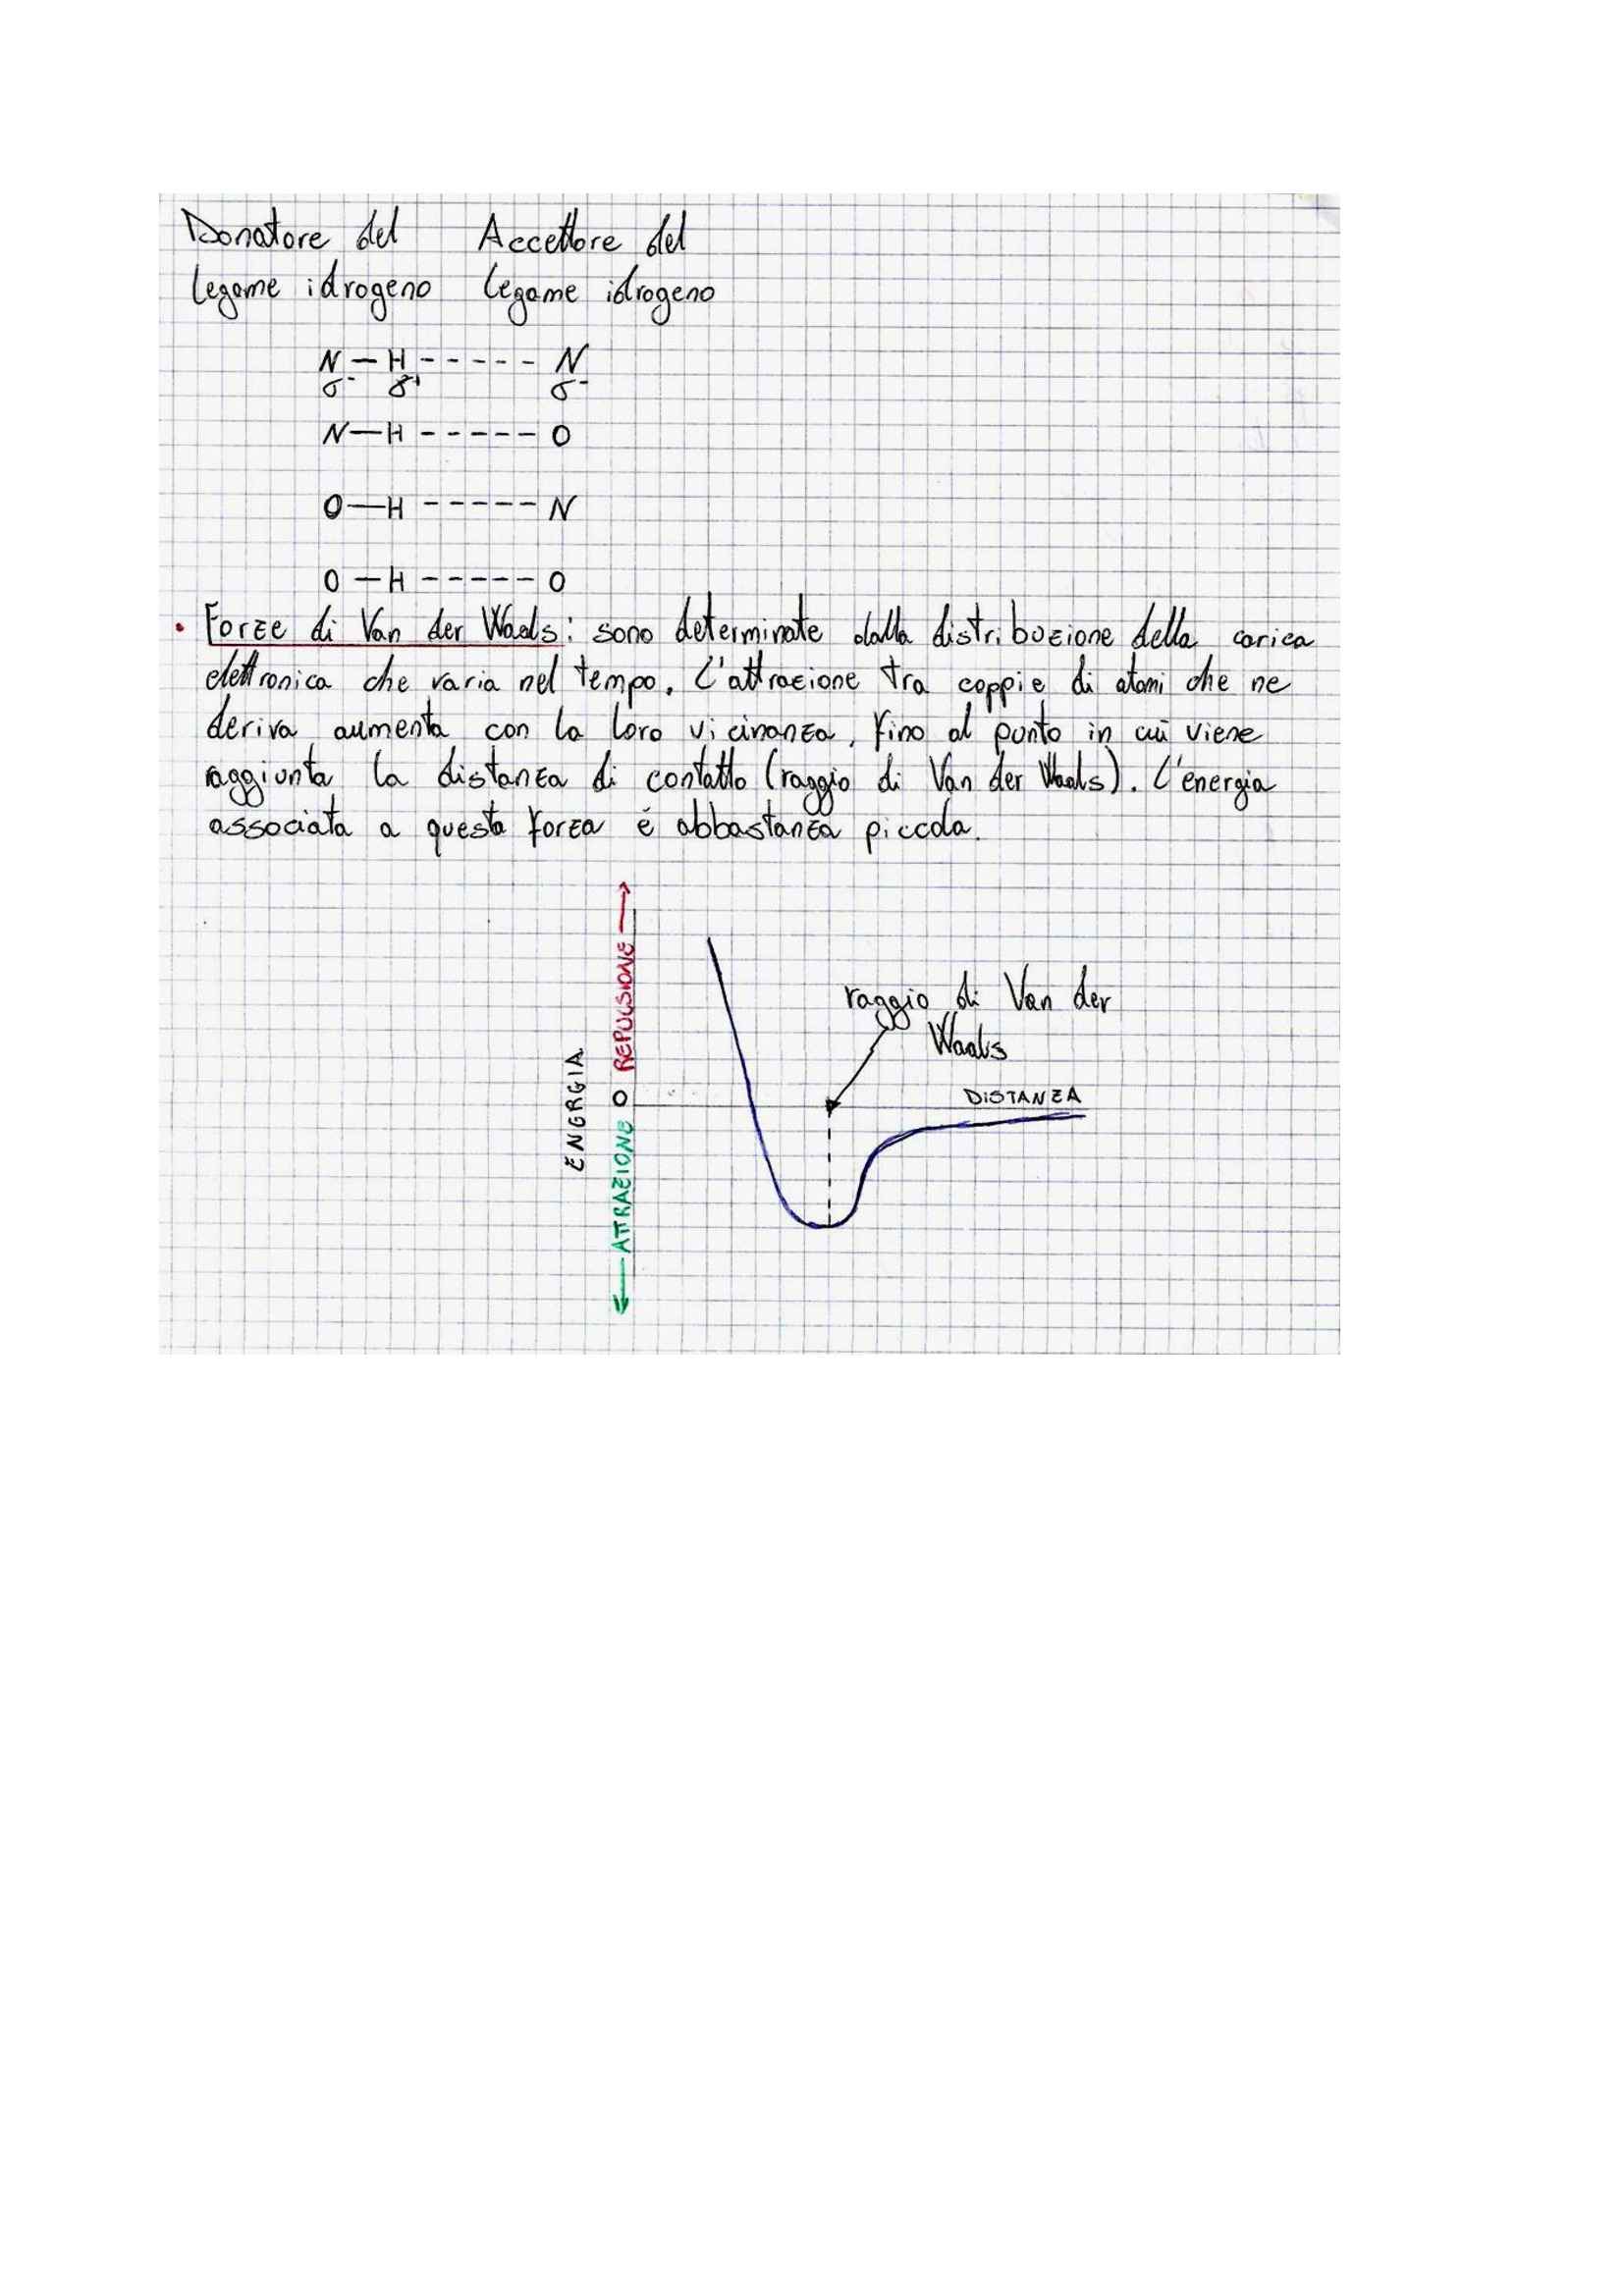 Donatore del Accettore del
legame idrogeno legame idrogeno
N — H ----- N
δ- δ+ δ-
N — H ----- O
O — H ----- N
O — H ----- O
• Forze di Van der Waals: sono determinate dalla distribuzione della carica
elettronica che varia nel tempo. L'attrazione tra coppie di atomi che ne
deriva aumenta con la loro vicinanza, fino al punto in cui viene
raggiunta la distanza di contatto (raggio di Van der Waals). L'energia
associata a questa forza é abbastanza piccola.
ENERGIA
REPULSIONE
O
ATTRAZIONE
raggio di Van der
Waals
DISTANZA